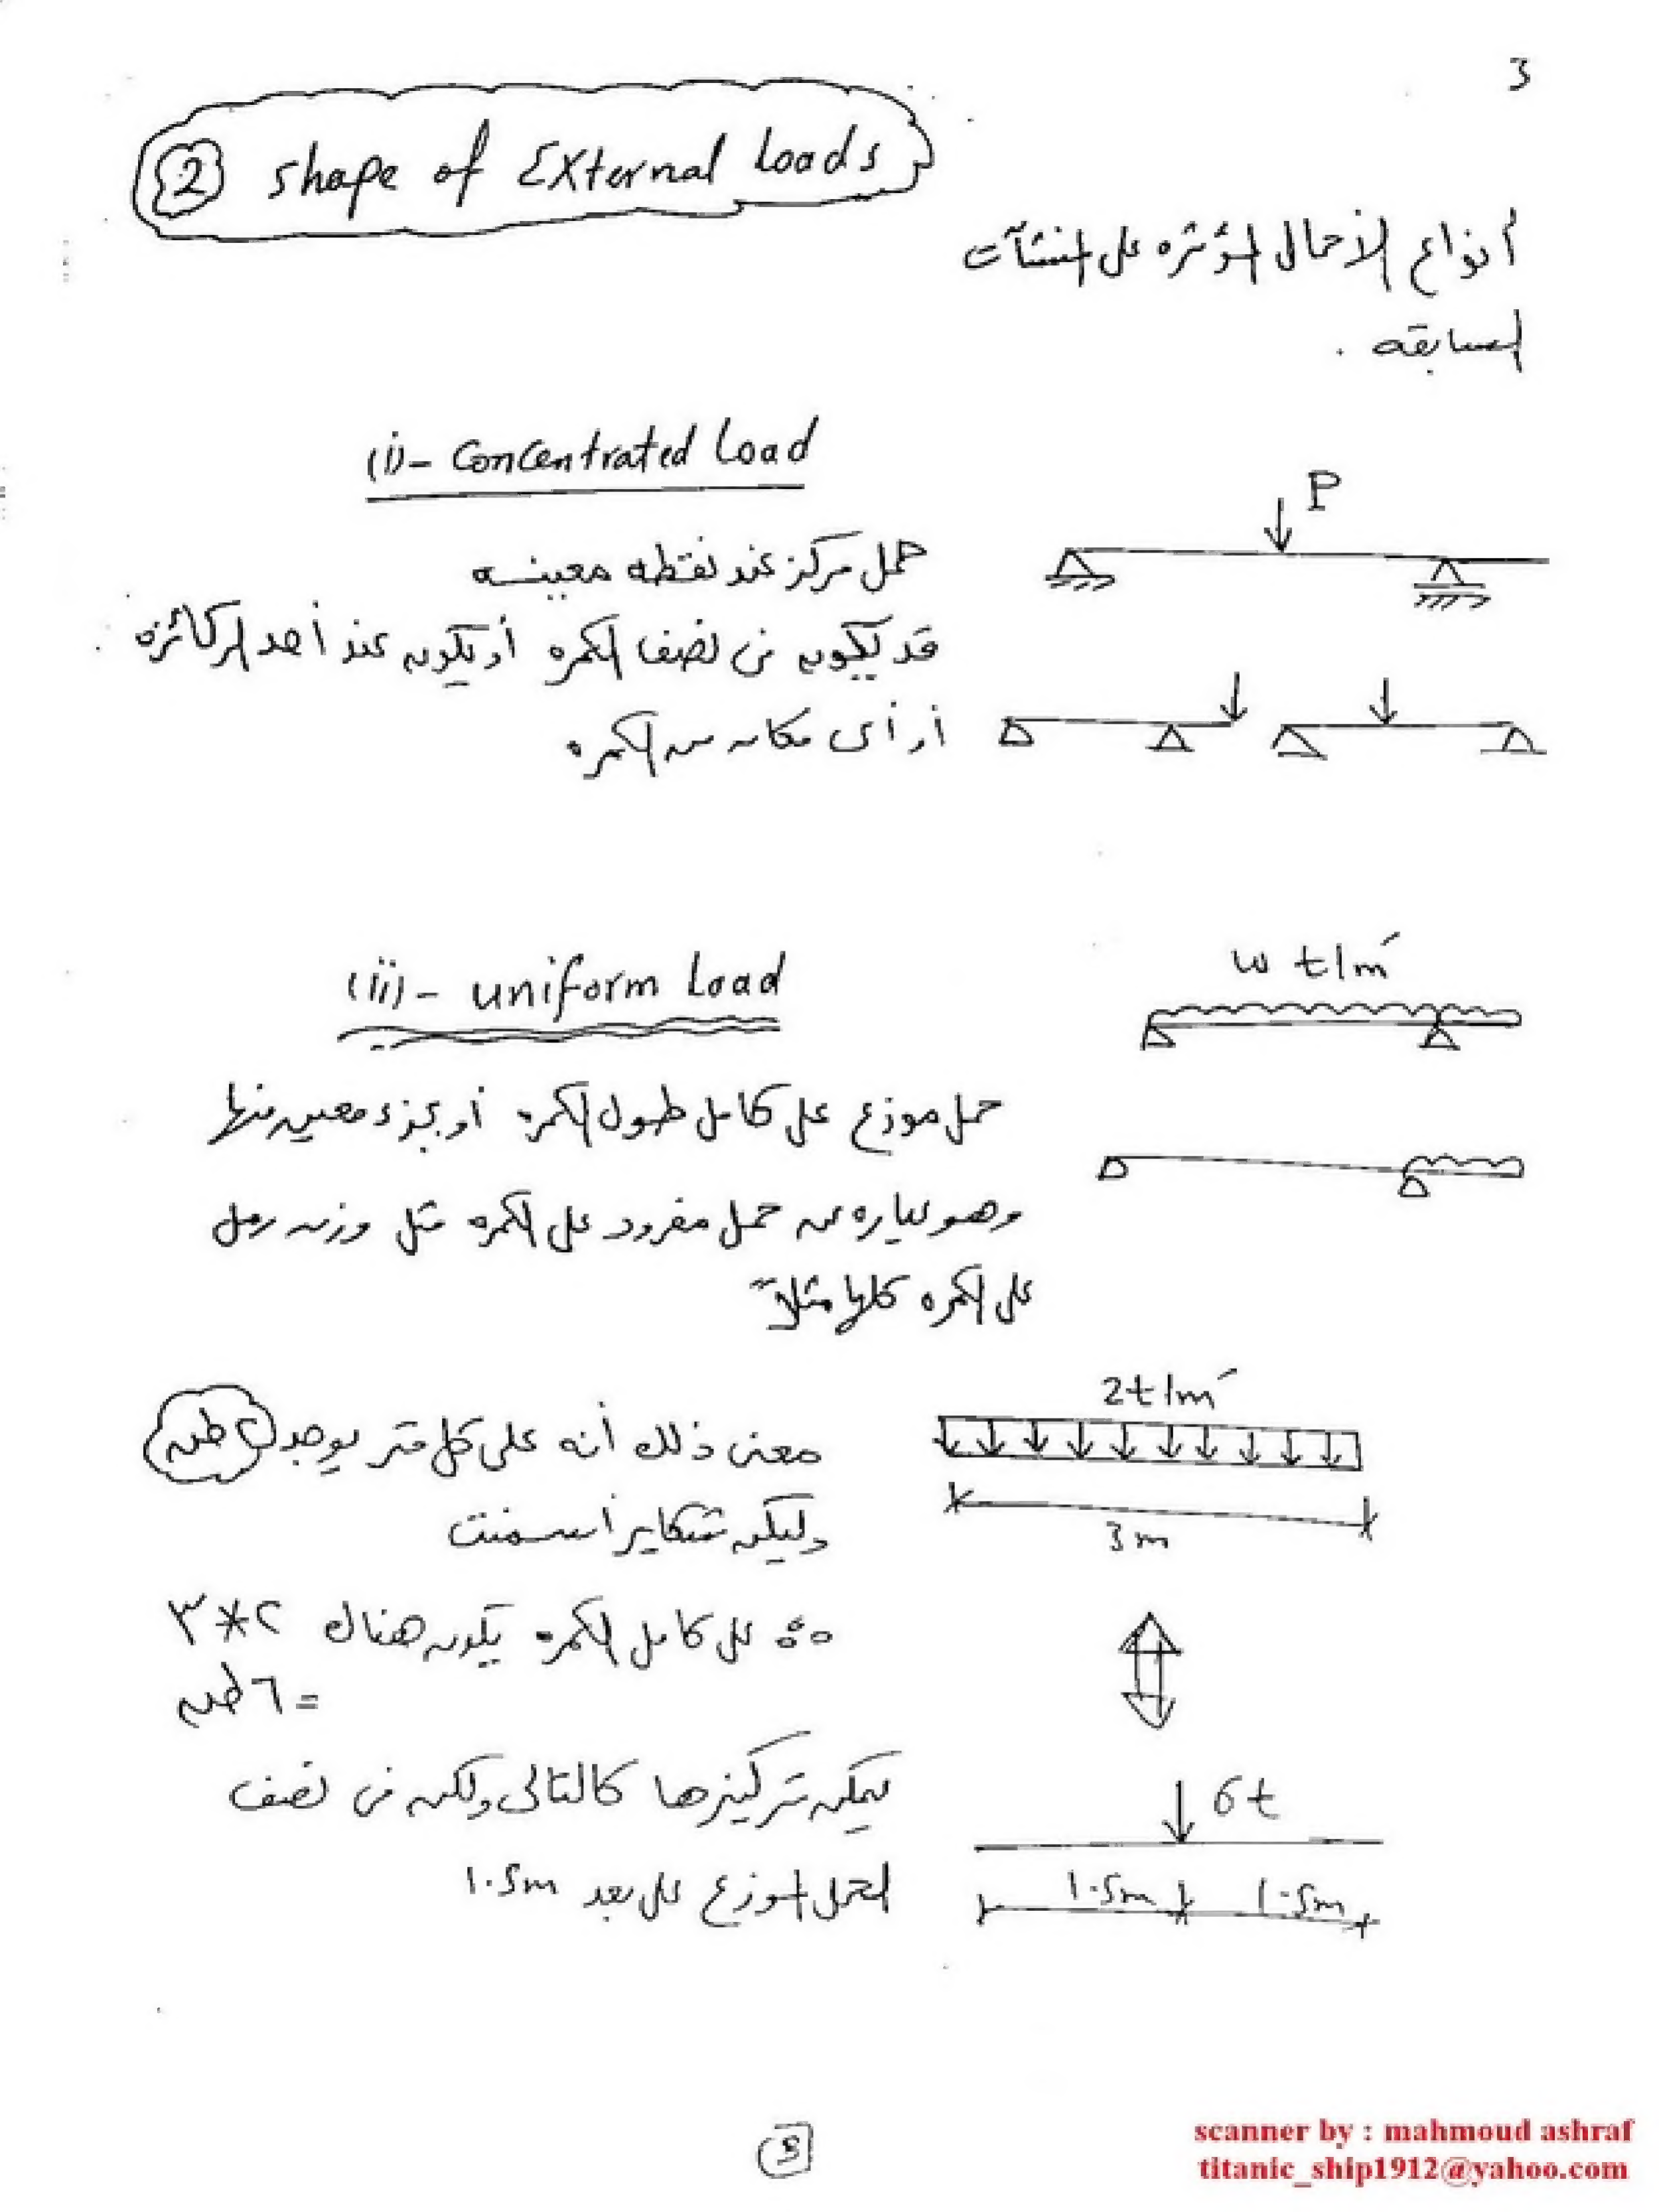 3
② Shape of External Loads
أنواع الأحمال المؤثره على المنشآت
السابقه .
(i)- Concentrated Load
P
حمل مركز عند نقطه معينه
قد يكون فى نصف الكمره أو يكون عند أحد الركائزه
أو أى مكان من الكمره
(ii)- uniform Load
w t/m'
حمل موزع على كامل طول الكمره أو بجزء معين منها
وهو عباره عن حمل مفرود على الكمره مثل وزن رمل
على الكمره كلها مثلاً
2t/m'
معنى ذلك أنه على كل متر يوجد ٢ طن
وليكن شكاير أسمنت
3m
∴ على كامل الكمره يكون هناك ٢*٣
= ٦ طن
يمكن تركيزها كالتالى ولكن فى نصف
6t
الحمل الموزع على بعد 1.5m
1.5m 1.5m
3
scanner by : mahmoud ashraf
titanic_ship1912@yahoo.com